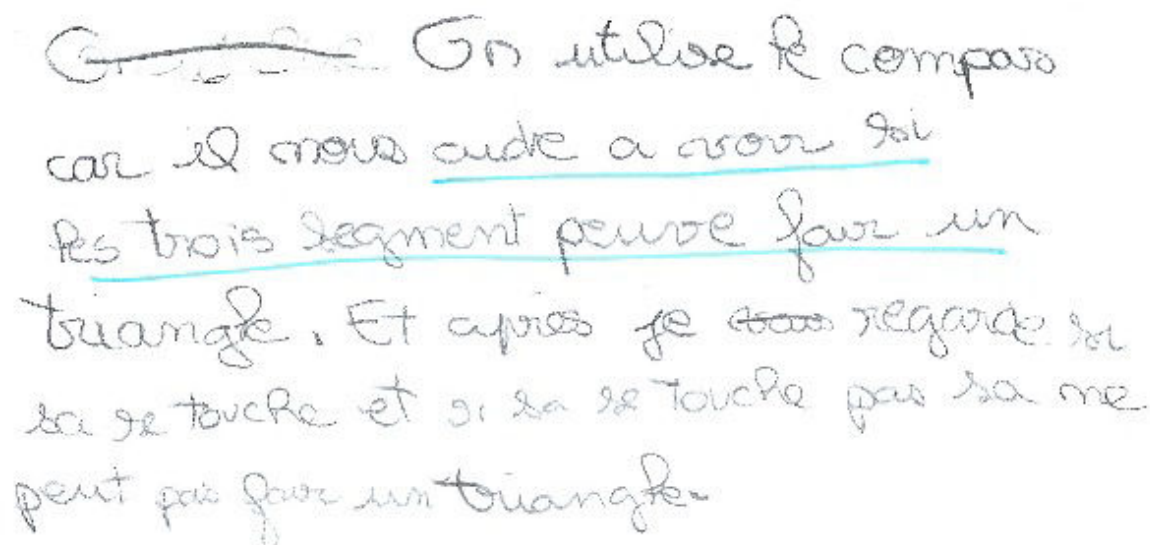 On utilise le compas
car il nous aide a voir si
les trois segment peuve fair un
triangle. Et après je regarde si
sa se touche et si sa se touche pas sa ne
peut pas fair un triangle.